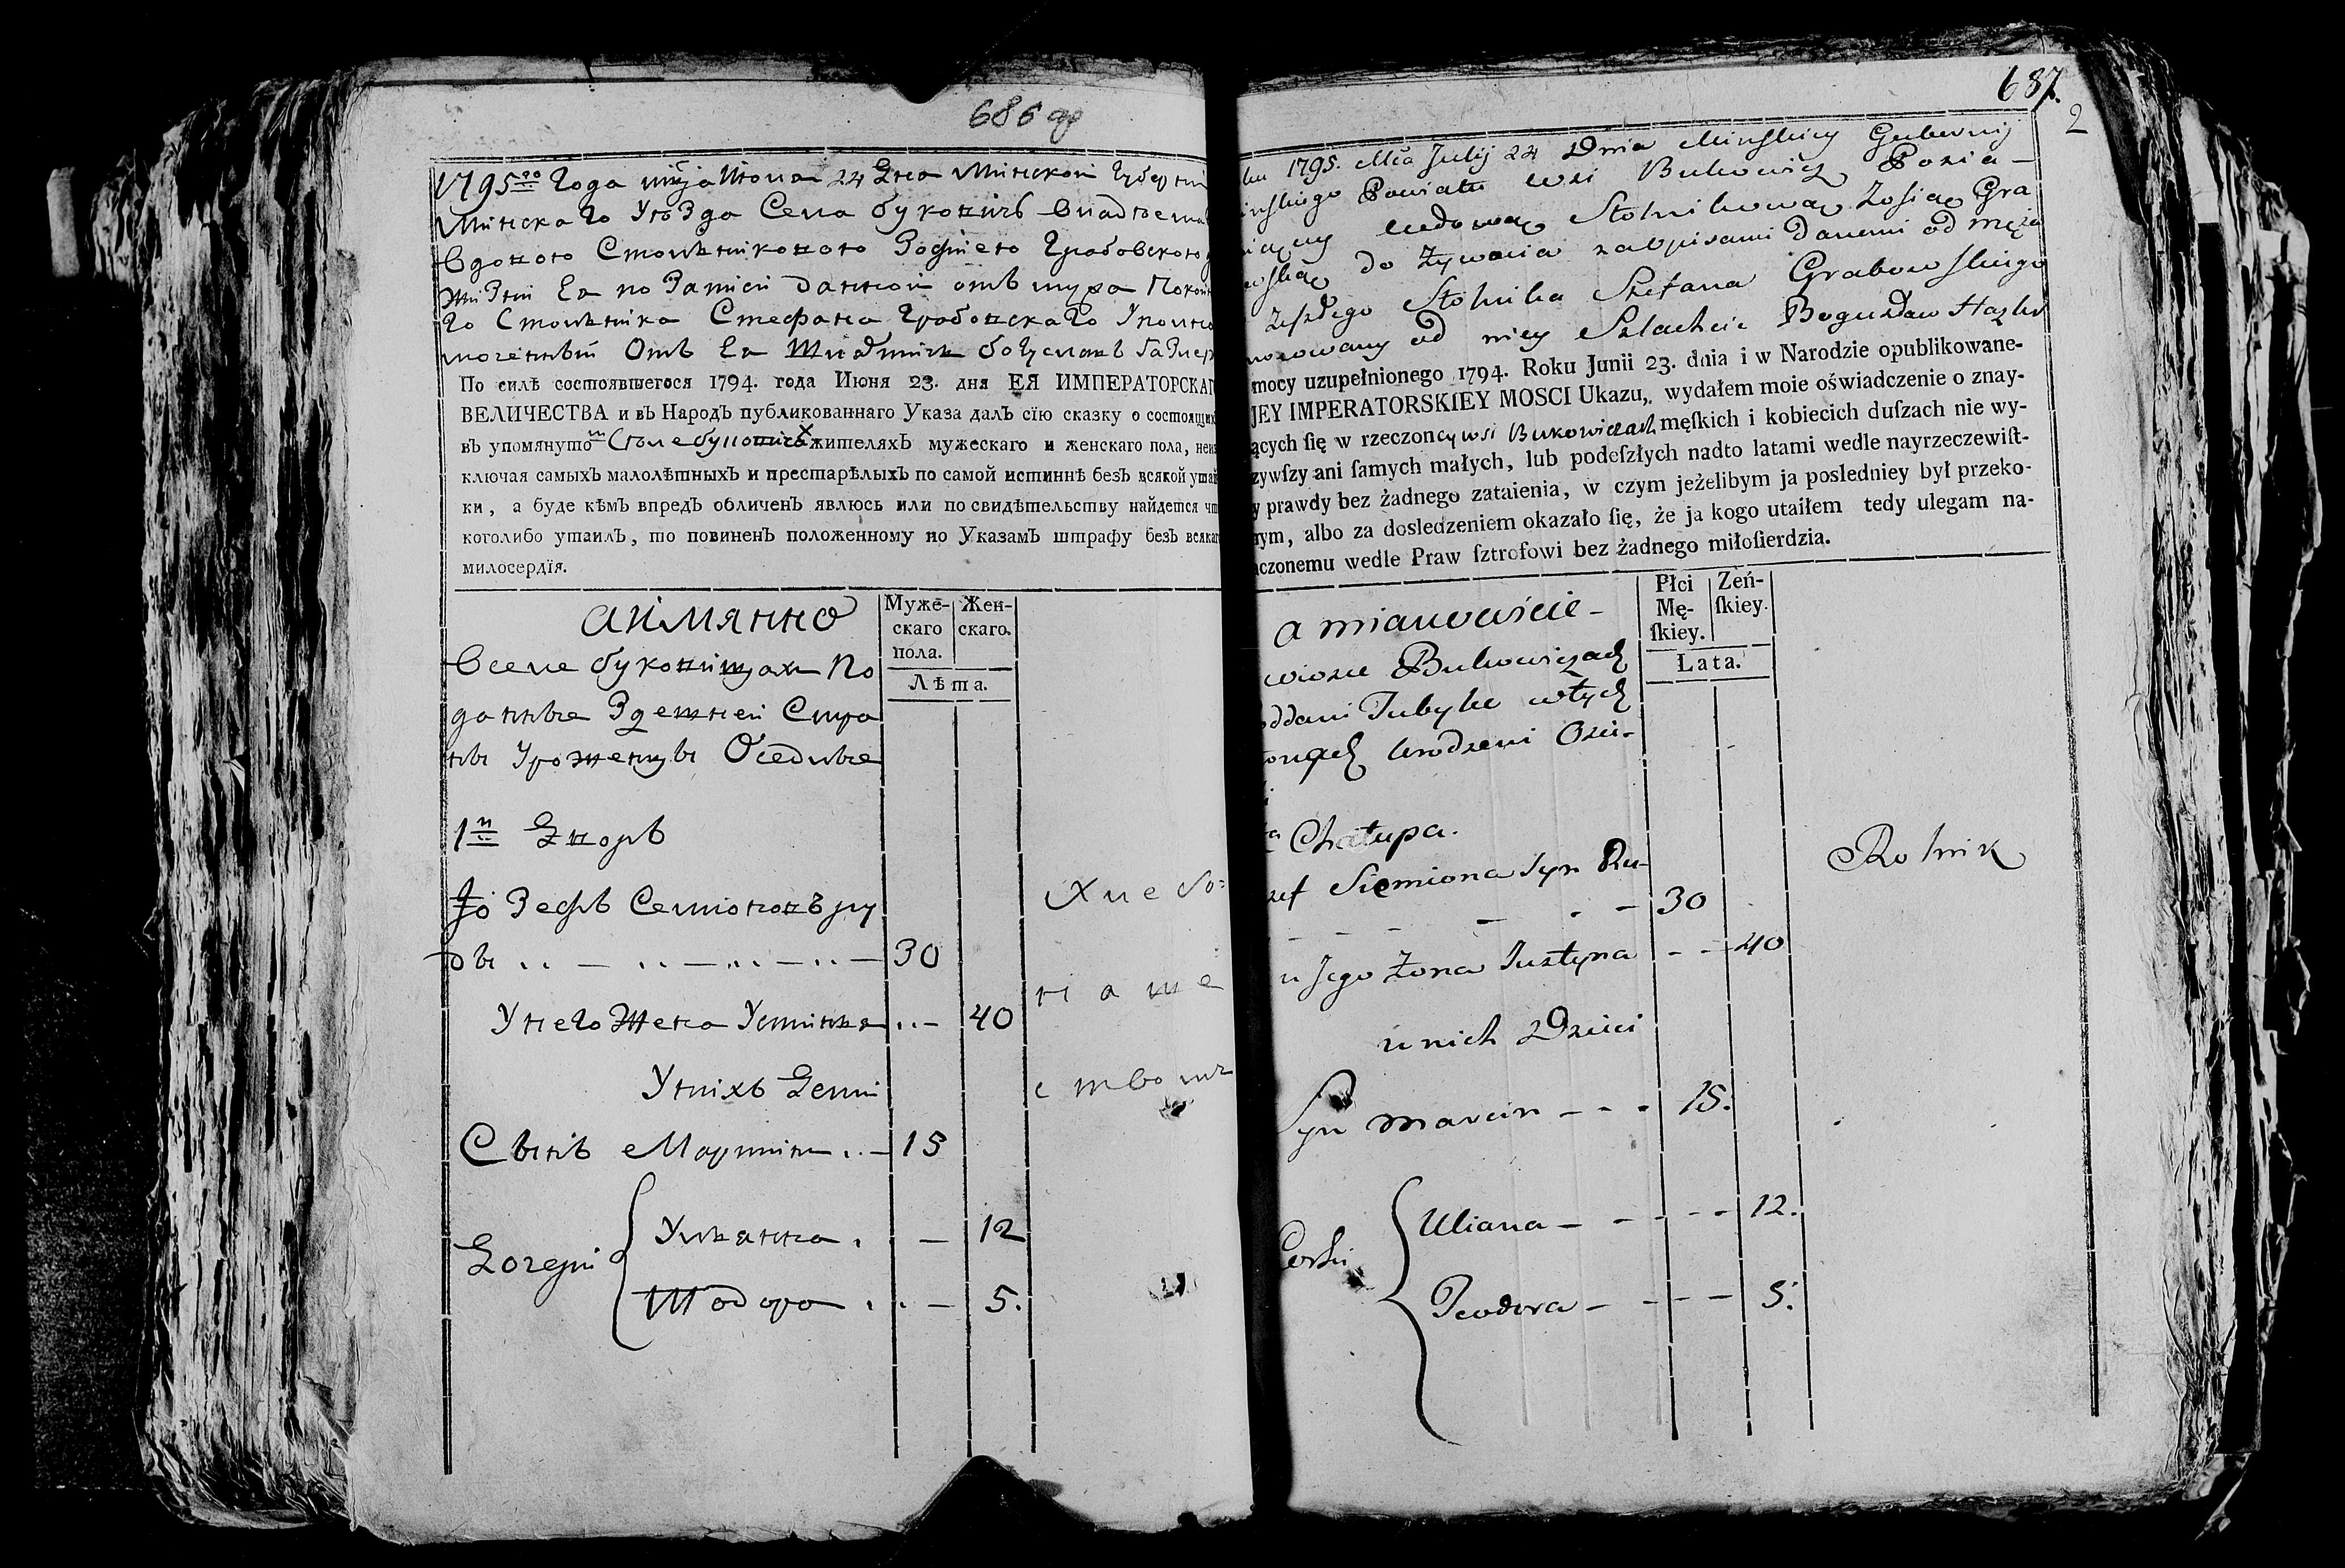 686 об
1795го Года мсца Июля 24 Дня Минской Губернии
Минскаго Уѣзда Села буковичь владѣема
вдовою Стольниковою Зофиею Грабовскою
жизни Ея по Записи данной отъ мужа Покой
го Стольника Стефана Грабовскаго Уполно
моченный Отъ Ея Шляхтичь богуславъ
По силѣ состоявшегося 1794. года Июня 23. дня ЕЯ ИМПЕРАТОРСКАГ
ВЕЛИЧЕСТВА и въ Народъ публикованнаго Указа далъ сїю сказку о состоящих
въ упомянутом Селе буковичах жителяхъ мужескаго и женскаго пола, неис
ключая самыхъ малолѣтныхъ и престарѣлыхъ по самой истиннѣ безъ всякой утай
ки, а буде кѣмъ впредъ обличенъ явлюсь или по свидѣтельству найдется что
коголибо утаилъ, то повиненъ положенному по Указамъ штрафу безъ всякаг
милосердїя.
аимянно
Муже-скаго пола.
Жен-скаго.
Лѣта.
Вселе буковичах По
даные Здешней Сторо
ны Уроженцы Оседлые
1й Дворъ
Iозефъ Семионовъ ру
ды 30
У него Жена Устинья 40
Унихъ Дети
Сынъ Мартинъ 15
Дочери
Ульянна 12
Тодора 5.
Хлебо=
паше
ствомъ
687.
2
ku 1795. Mca Julij 24 Dnia Minskiey Gubernij
inskiego Powiatu wsi Bukowicz Posia-
iącey wdową Stolnikową Zosią Gra
wską do żywocia zapisami danemi od męża
zeszłego Stolnika Stefana Grabowskiego
mocowany od niey Szlachcic Bogusław
mocy uzupełnionego 1794. Roku Junii 23. dnia i w Narodzie opublikowane-
JEY IMPERATORSKIEY MOSCI Ukazu, wydałem moie oświadczenie o znay-
ących ſię w rzeczoney wsi Bukowiczach męſkich i kobiecich duſzach nie wy-
zywſzy ani ſamych małych, lub podeſzłych nadto latami wedle nayrzeczewiſt-
y prawdy bez żadnego zataienia, w czym jeżelibym ja posledniey był przeko-
nym, albo za dosledzeniem okazało ſię, że ja kogo utaiłem tedy ulegam na-
aczonemu wedle Praw ſztrofowi bez żadnego miłoſierdzia.
a mianowicie-
Płci Mę-ſkiey.
Żeń-ſkiey.
Łata.
wiosce Bukowiczach
oddani Tubylce wtych
tonach Urodzeni Osie-
Chałupa.
zef Siemiona Syn Ru- 30
u Jego Żona Justyna 40
u nich Dzieci
Syn Marcin 15.
Corki
Uliana 12.
Teodora 5.
Rolnik